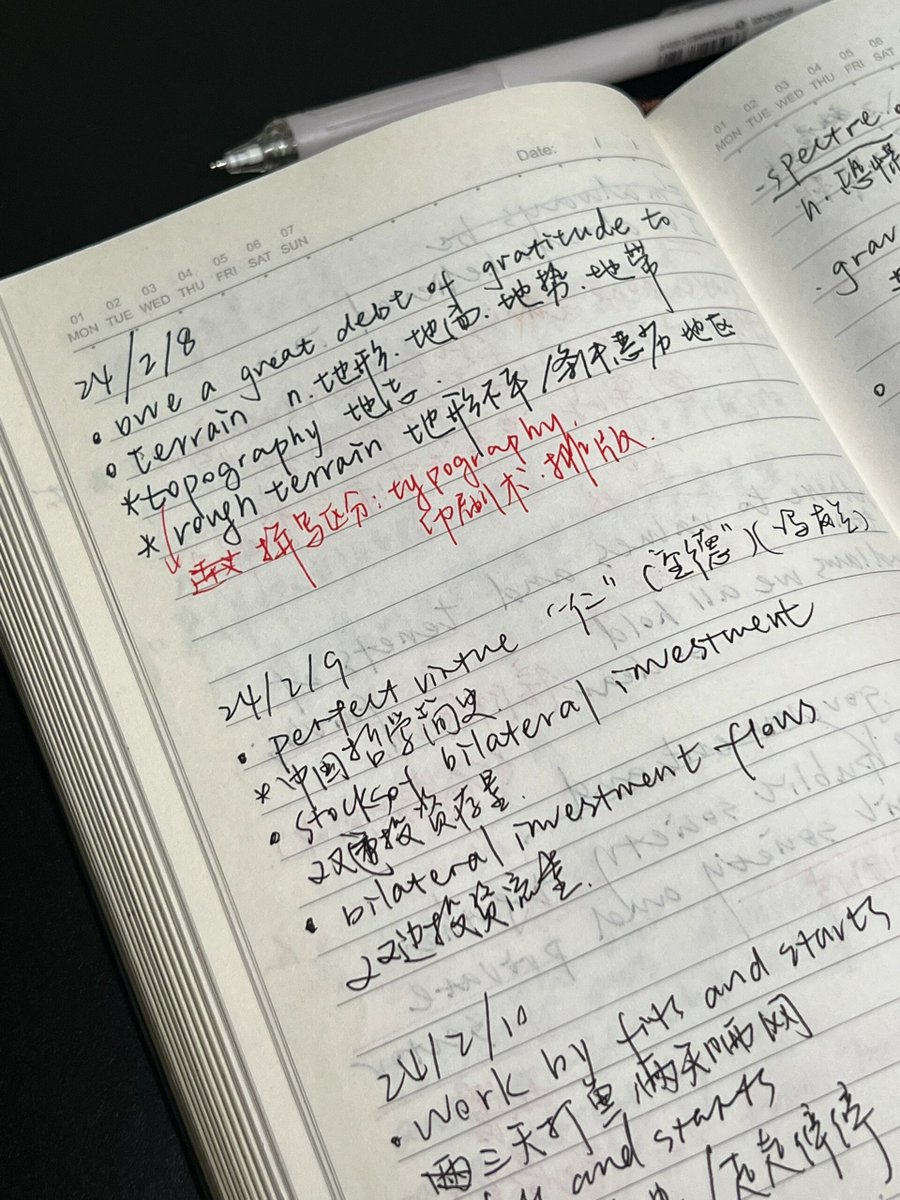 Date:
01 02 03 04 05 06 07
MON TUE WED THU FRI SAT SUN
24/2/8
• owe a great debt of gratitude to
• terrain n. 地形.地面.地势.地带
*topography 地志.
*rough terrain 地形不平/条件恶劣地区
拼写区分: typography.
印刷术.排版.
24/2/9
• perfect virtue "仁" ("全德") (冯友兰)
*中国哲学简史.
• stocks of bilateral investment
双边投资存量.
• bilateral investment flows
双边投资流量.
24/2/10
• work by fits and starts
三天打鱼两天晒网
and starts
停停
01 02 03 04 05 06
MON TUE WED THU FRI SAT
spectre
n. 恐惧
grav